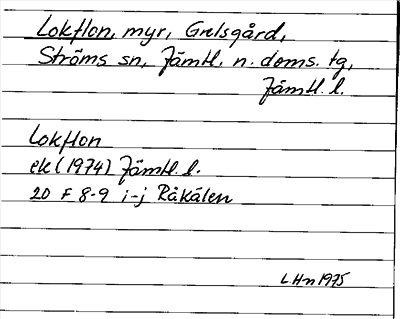 Lokflon, myr, Grelsgård,
Ströms sn, Jämtl. n. doms. tg,
Jämtl. l.
Lokflon
ek (1974) Jämtl. l.
20 F 8-9 i-j Råkälen
L.Hn 1975